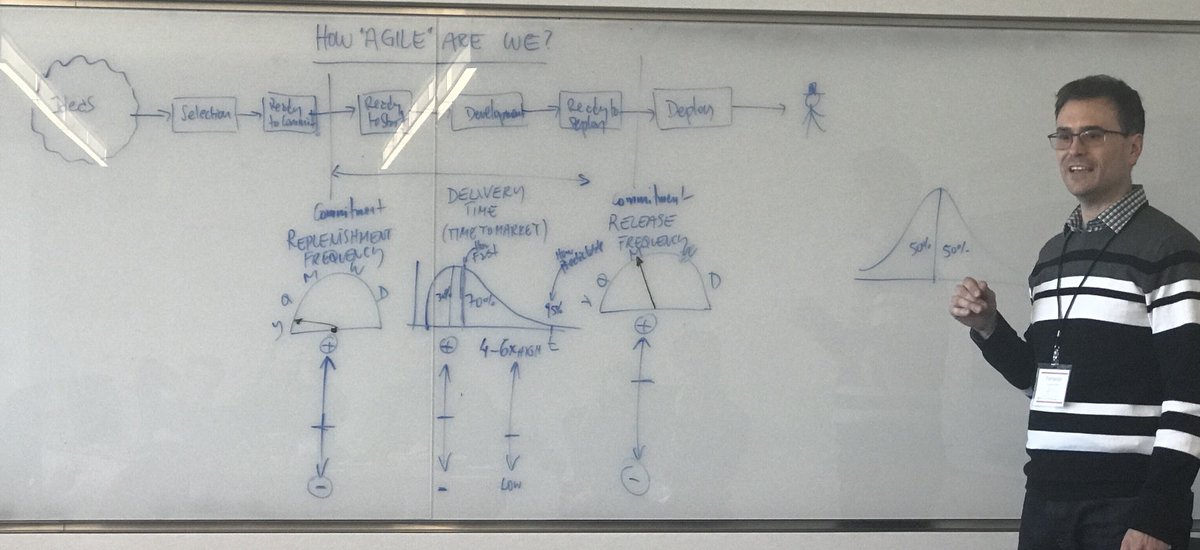 HOW "AGILE" ARE WE?
Ideas
Selection
Ready
to Commit
Ready
To Start
Development
Ready to
Deploy
Deploy
Commitment
REPLENISHMENT
FREQUENCY
Y
Q
M
W
D
DELIVERY
TIME
(TIME TO MARKET)
How
Fast
70%
How
Predictable
95%
t
Commitment
RELEASE
FREQUENCY
Y
Q
M
W
D
50%
50%
+
+
4-6x HIGH
+
-
-
LOW
-